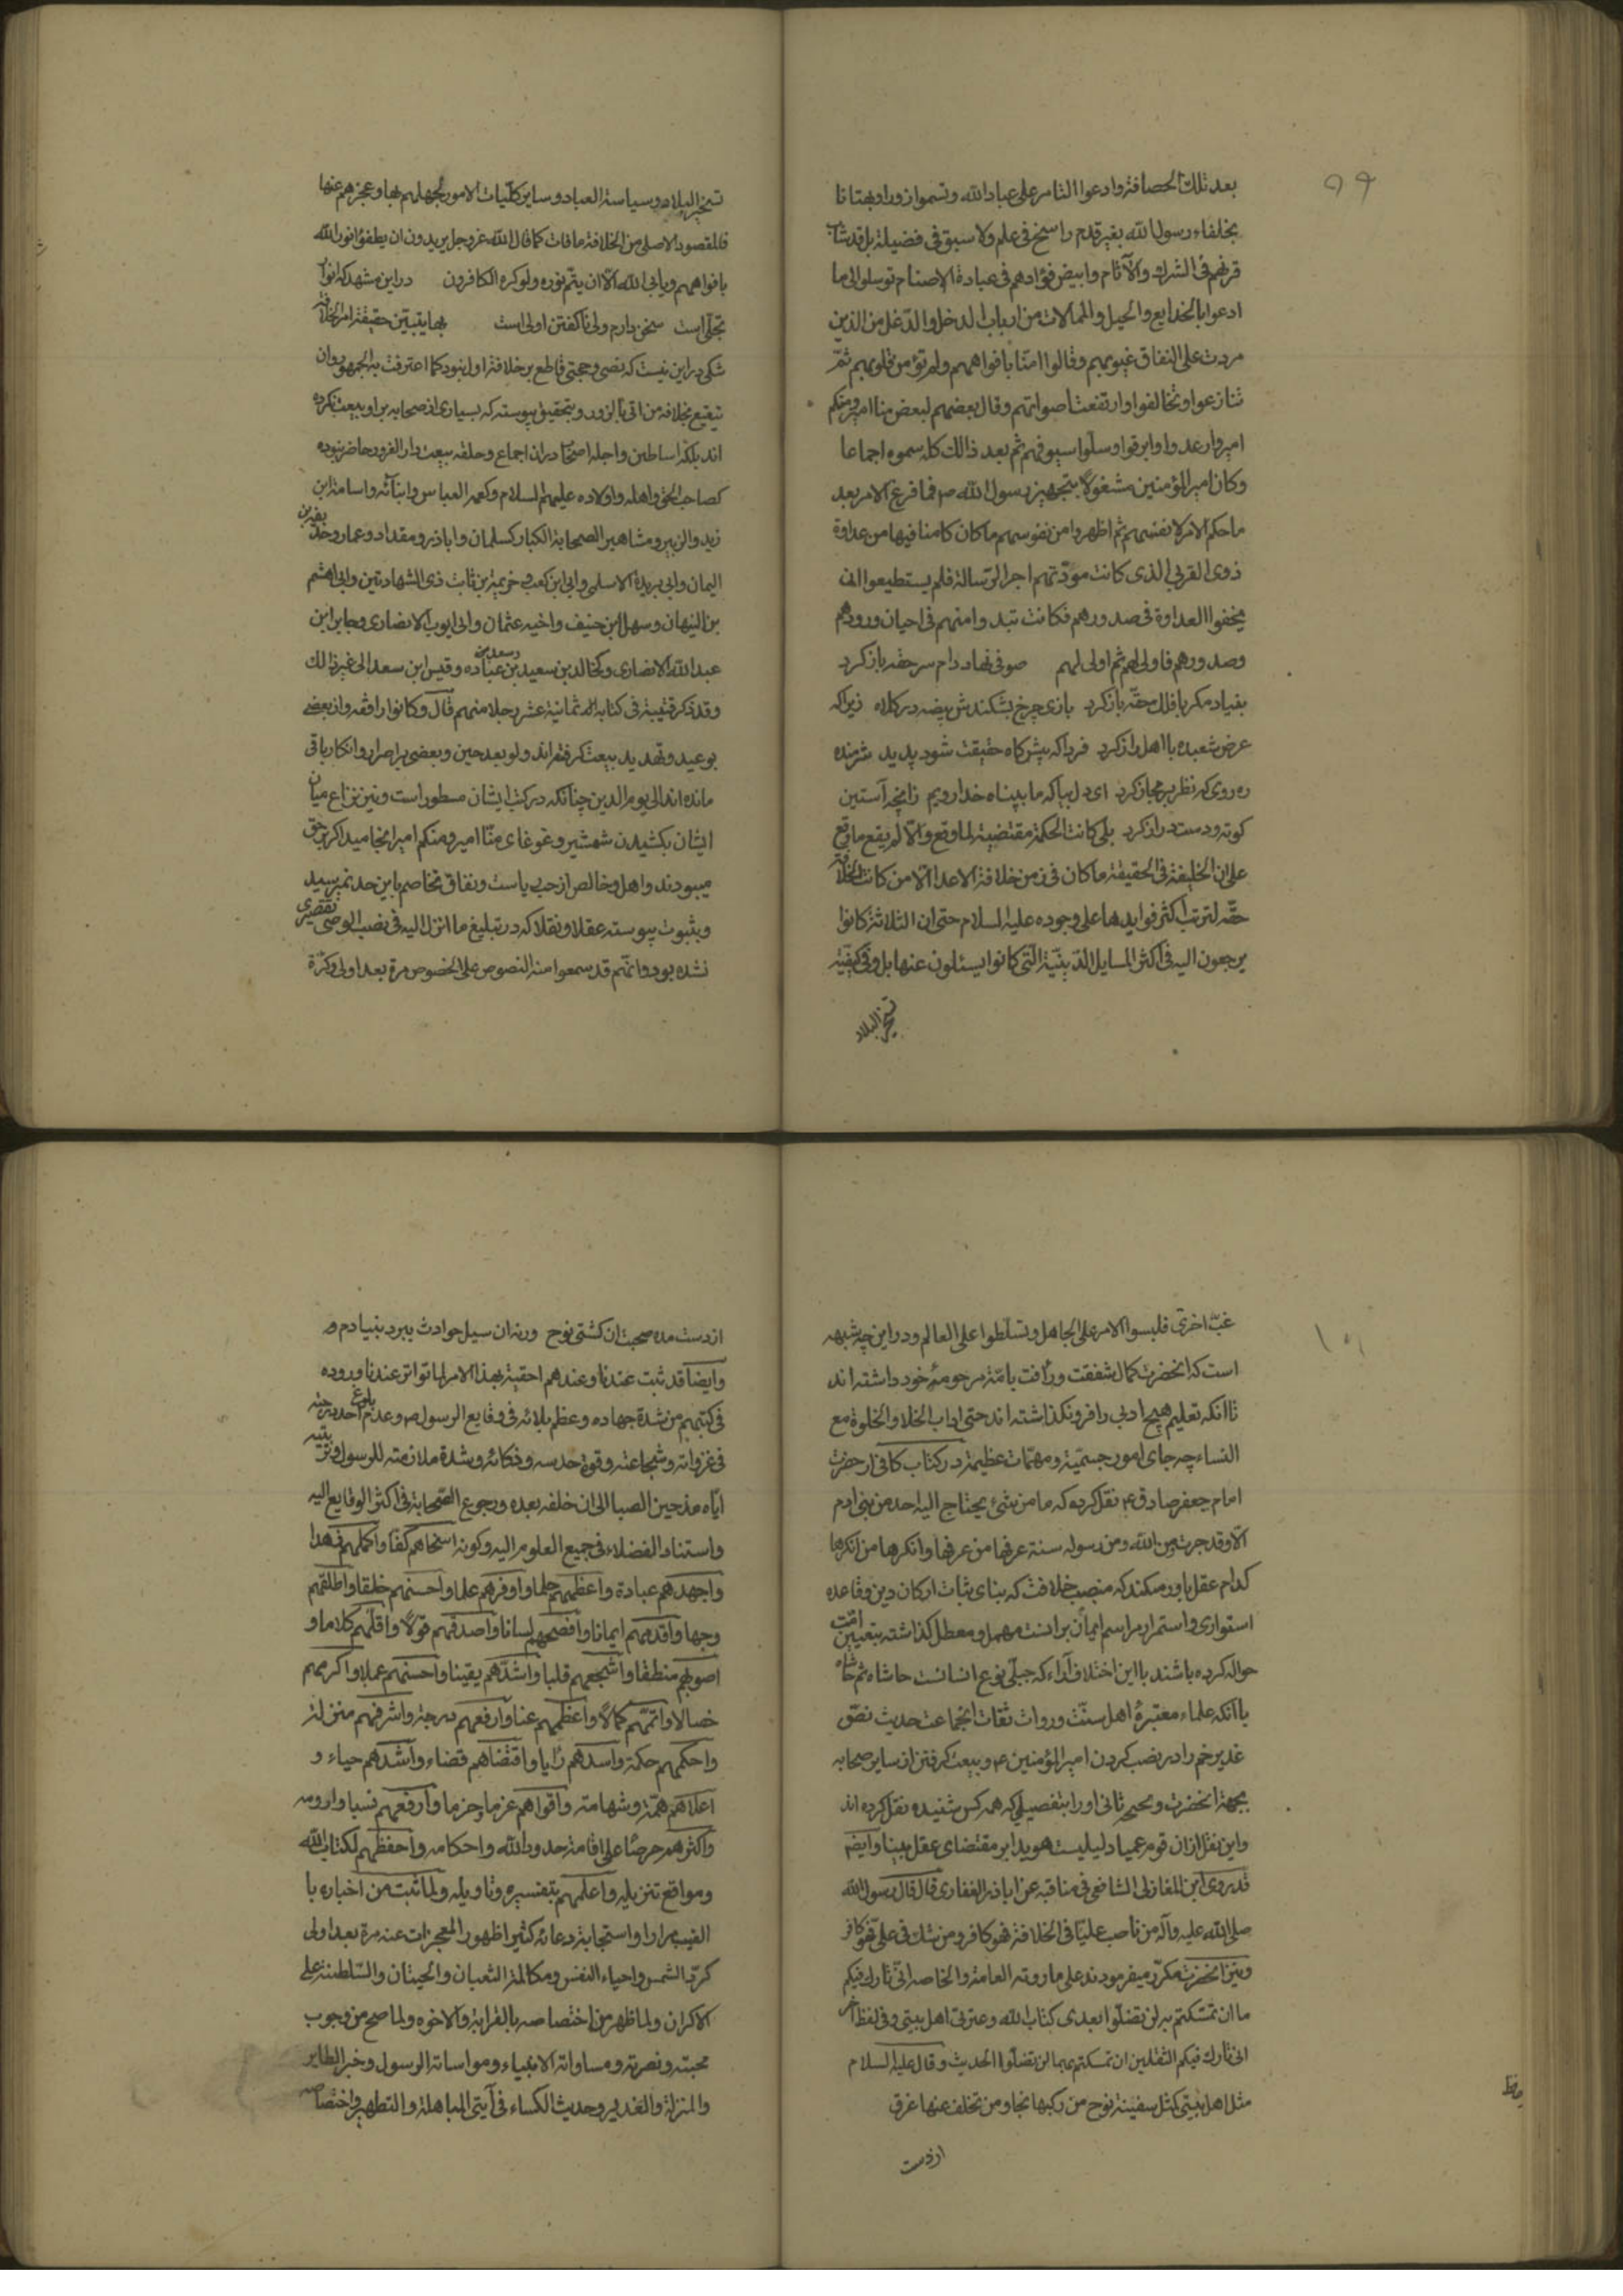 ۹۹
بعد تلك الحصافة وادعوا التامر على عباد الله وتسموا زورا وبهتانا
بخلفاء رسول الله بغير قدم راسخ فى علم ولا سبق فى فضيلة بل قد شاب
قرنهم فى الشرك والآثام وابيض فؤادهم فى عبادة الاصنام توسلوا الى ما
ادعوا بالخدايع والحيل والممالات من ارباب الدخل والدغل من الذين
مردت على النفاق غيوبهم وقالوا امنا بافواههم ولم تؤمن قلوبهم ثم
تنازعوا وتخالفوا وارتفعت اصواتهم وقال بعضهم لبعض منا امير ومنكم
امير وارعدوا وابرقوا وسلوا سيوفهم ثم بعد ذالك كله سموه اجماعا
وكان امير المؤمنين مشغولا بتجهيز رسول الله ص فما فرغ الامر بعد
ما حكم الامر لانفسهم ثم اظهروا من نفوسهم ما كان كامنا فيها من عداوة
ذوى القربى الذى كانت مودتهم اجر الرسالة فلم يستطيعوا ان
يخفوا العداوة فى صدورهم فكانت تبدوا منهم فى احيان ورودهم
وصدورهم فاولى لهم ثم اولى لهم صوفى نهاد دام سر حقه باز كرد
بنياد مكر با فلك حقه باز كرد بازى چرخ بشكندش بيضه در كلاه زيرا كه
عرض شعبده با اهل راز كرد فردا كه پيشگاه حقيقت شود پديد شرمنده
ره روى كه نظر بر مجاز كرد اى دل بيا كه ما بپناه خدا رويم زانچه آستين
كوته و دست دراز كرد بلى كانت الحكمة مقتضية لما وقع والا لم يقع ما وقع
على ان الخليفة فى الحقيقة ما كان فى زمن خلافة الاعدا الا من كانت الخلافة
حقه لترتب اكثر فوايدها على وجوده عليه السلام حتى ان الثلاثة كانوا
يرجعون اليه فى اكثر المسايل الدينية التى كانوا يسئلون عنها بل وفى كيفية
تسخير البلاد
تسخير البلاد وسياسة العباد وساير كليات الامور لجهلهم بها وعجزهم عنها
فالمقصود الاصلى من الخلافة ما فات كما قال الله عز وجل يريدون ان يطفؤا نور الله
بافواههم ويابى الله الا ان يتم نوره ولو كره الكافرون در اين مشهد كه انوار
تجلى است سخن دارم ولى ناگفتن اولى است بها يتبين حقيقة امر الخلافة
شكى در اين نيست كه نصى وحجتى قاطع بر خلافة اول نبود كما اعترفت به الجمهور وان
تيقنع بخلافه من اتى بالزور و بتحقيق پيوسته كه بسيارى از صحابه بر او بيعت نكرده
اند بلكه اساطين واجله اصحاب در ان اجماع وحلقه بيعت دار الغرور حاضر نبوده
كصاحب الحق واهله واولاده عليهم السلام وكعمه العباس وابنائه واسامة ابن
زيد والزبير ومشاهير الصحابة الكبار كسلمان واباذر ومقداد وعمار وحذيفة بن
اليمان وابى بريدة الاسلمى وابى ابن كعب وخزيمة بن ثابت ذى الشهادتين وابى الهثيم
بن التيهان وسهل ابن حنيف واخيه عثمان وابى ايوب الانصارى وجابر ابن
عبد الله الانصارى وكخالد بن سعيد وسعد بن عباده وقيس ابن سعد الى غير ذالك
وقد ذكر قتيبة فى كتابه ثمانية عشر رجلا منهم قال وكانوا رافضة واز بعضى
بوعيد وتهديد بيعت گرفته اند ولو بعد حين وبعضى بر اصرار وانكار باقى
مانده اند الى يوم الدين چنانكه در كتب ايشان مسطور است ونيز نزاع ميان
ايشان بكشيدن شمشير وغوغاى منا امير ومنكم امير انجاميد اگر بر حق
ميبودند واهل وخالص از حب رياست ونفاق تخاصم باين حد نميرسيد
وبثبوت پيوسته عقلا ونقلا كه در تبليغ ما انزل اليه فى نصب الوصى تقصيرى
نشده بود وانهم قد سمعوا منه النصوص على الخصوص مرة بعد اولى وكرة
۱۰۱
غب اخرى فلبسوا الامر على الجاهل وتسلطوا على العالم ودر اين چه شبهه
است كه انحضرت كمال شفقت ورأفت بامة مرحومۀ خود داشته اند
تا انكه تعليم هيچ ادبى را فرو نگذاشته اند حتى اداب الخلا والخلوة مع
النساء چه جاى امور جسمية ومهمات عظيمة در كتاب كافى از حضرت
امام جعفر صادق ع نقل كرده كه ما من شئ يحتاج اليه احد من بنى ادم
الا وقد جرت من الله ومن رسوله سنة عرفها من عرفها وانكرها من انكرها
كدام عقل باور ميكند كه منصب خلافت كه بناى ثبات اركان دين وقاعده
استوارى واستمرار مراسم ايمان برانست مهمل ومعطل گذاشته بتعيين امت
حواله كرده باشند با اين اختلاف آراء كه جبلى نوع انسانست حاشاه ثم حاشاه
با آنكه علماء معتبرۀ اهل سنت وروات ثقات انجماعت حديث نص
غدير خم را در نصب كردن امير المؤمنين ع وبيعت گرفتن از ساير صحابه
بجهة انحضرت وبخبخ ثانى او را بتفصيلى كه همه كس شنيده نقل كرده اند
واين نقل از ان قوم عميا دليليست هويدا بر مقتضاى عقل بينا وايضا
قد روى ابن المغازلى الشافعى فى مناقبه عن اباذر الغفارى قال قال رسول الله
صلى الله عليه وآله من ناصب عليا فى الخلافة فهو كافر ومن شك فى على فهو كافر
ونيز انحضرت مكرر ميفرمودند على ما روته العامة والخاصه انى تارك فيكم
ما ان تمسكتم به لن تضلوا بعدى كتاب الله وعترتى اهل بيتى وفى لفظ آخر
انى تارك فيكم الثقلين ان تمسكتم بهما لن تضلوا الحديث وقال عليه السلام
مثل اهل بيتى كمثل سفينة نوح من ركبها نجا ومن تخلف عنها غرق
از دست
از دست مده صحبت ان كشتى نوح ورنه ان سيل حوادث ببرد بنيادم و
وايضا قد ثبت عندنا وعندهم احقيته بهذا الامر لما تواتر عندنا وروده
فى كتبهم من شدة جهاده وعظم بلائه فى وقايع الرسول ص وعدم بلوغ احد درجته
فى غزواته وشجاعته وقوة حدسه وذكائه وشدة ملازمته للرسول وتربيته
اياه مذ حين الصبا الى ان خلفه بعده ورجوع الصحابة فى اكثر الوقايع اليه
واستناد الفضلاء فى جميع العلوم اليه وكونه اسخاهم كفا واكملهم زهدا
واجهدهم عبادة واعظمهم حلما واوفرهم علما واحسنهم خلقا واطلقهم
وجها واقدمهم ايمانا وافصحهم لسانا واصدقهم قولا واقلهم كلاما و
اصوبهم منطقا واشجعهم قلبا واشدهم يقينا واحسنهم عملا واكرمهم
خصالا واتمهم كمالا واعظمهم عنا وارفعهم درجة واشرفهم منزلة
واحكمهم حكمة واسدهم رايا واقضاهم قضاء واشدهم حياء و
اعلاهم همة وشهامة واقواهم عزما وحزما وارفعهم نسبا وارومه
واكثرهم حرصا على اقامة حدود الله واحكامه واحفظهم لكتاب الله
ومواقع تنزيله واعلمهم بتفسيره وتاويله ولما ثبت من اخباره با
الغيب مرارا واستجابة دعائه كثيرا ظهور المعجزات عنه مرة بعد اولى
كرد الشمس واحياء النفس ومكالمة الثعبان والحيتان والسلطنة على
الاكران ولما ظهر من اختصاصه بالقرابة والاخوه ولما صح من وجوب
محبته ونصرته ومساواته الانبياء ومواساته الرسول وخبر الطاير
والمنزلة والغدير وحديث الكساء فى آيتى المباهلة والتطهير واختصاصه